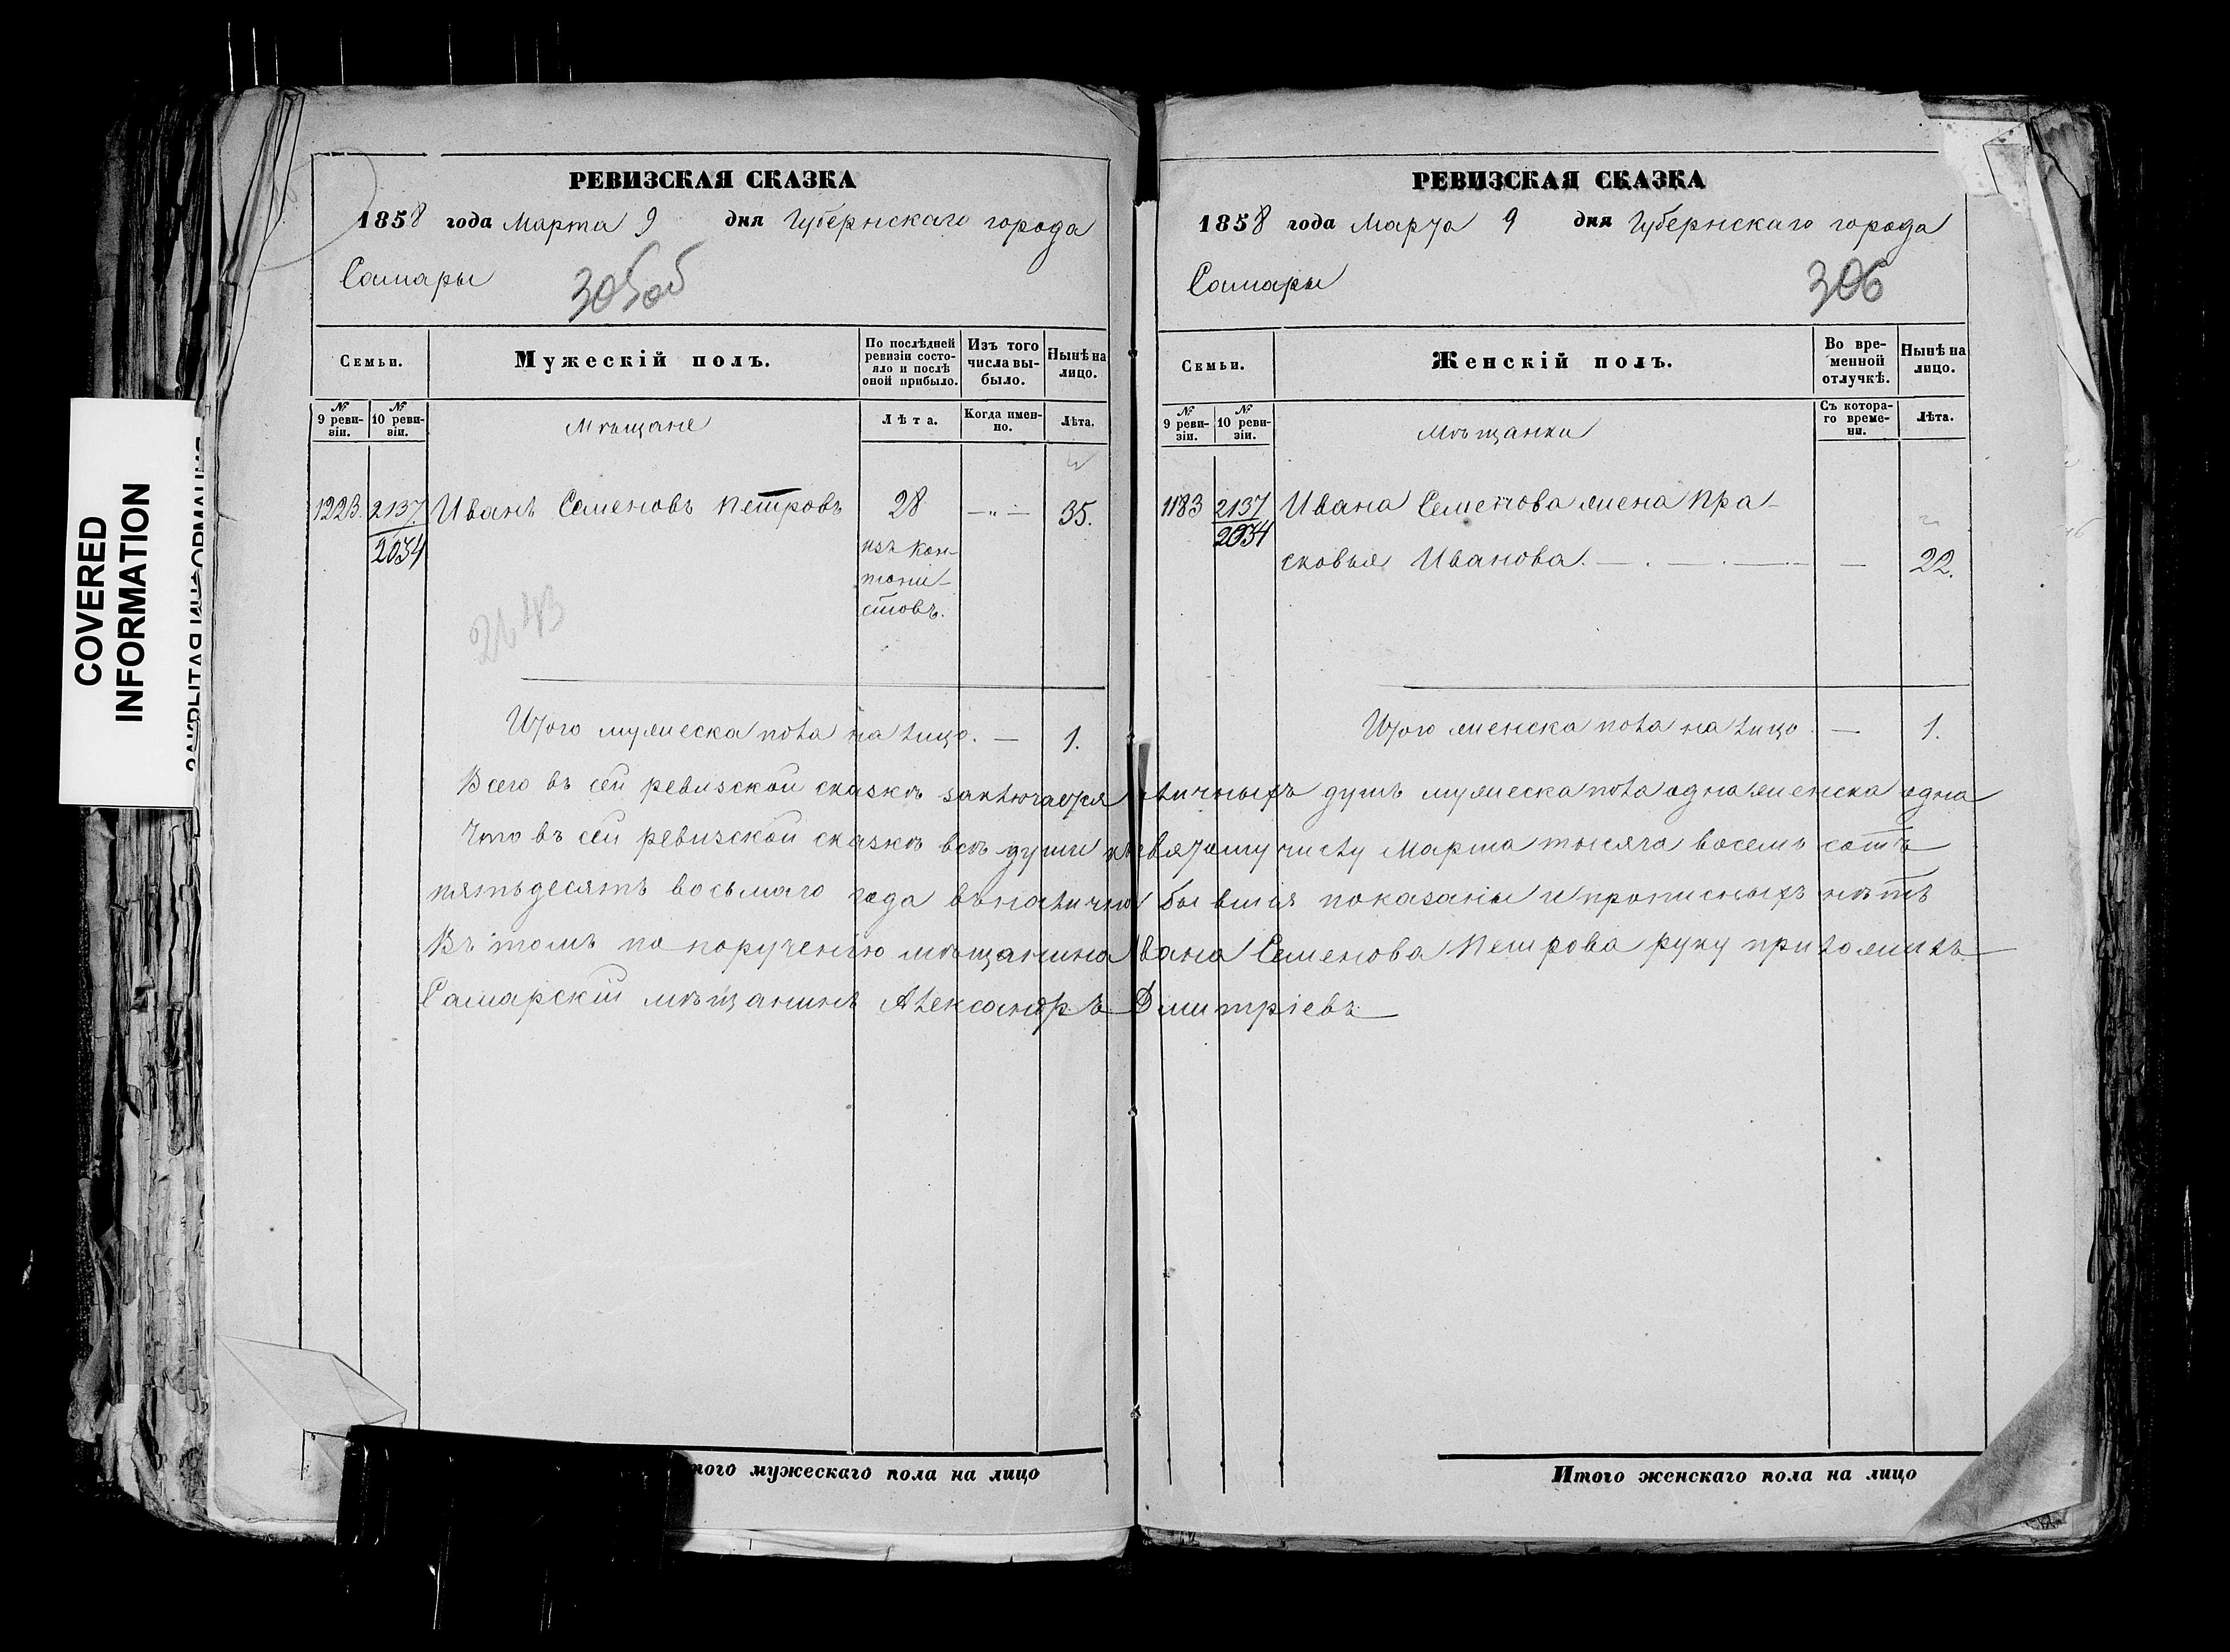 COVERED
INFORMATION
РЕВИЗСКАЯ СКАЗКА
1858 года Марта 9 дня Губернскаго города
Самары
305об
Семьи.
Мужескій полъ.
По послѣдней ревизіи состояло и послѣ оной прибыло.
Изъ того числа выбыло.
Нынѣ на лицо.
№ 9 ревизіи.
№ 10 ревизіи.
Мѣщане
Лѣта.
Когда именно.
Лѣта.
1223. 2137. Иванъ Семеновъ Петровъ 28 —„— 35.
2034
изъ кан-
тони-
стовъ.
Итого мужеска пола на лицо. — 1.
РЕВИЗСКАЯ СКАЗКА
1858 года Марта 9 дня Губернскаго города
Самары
306
Семьи.
Женскій полъ.
Во временной отлучкѣ.
Нынѣ на лицо.
№ 9 ревизіи.
№ 10 ревизіи.
Мѣщанки
Съ котораго времени.
Лѣта.
1183 2137 Ивана Семенова жена Пра-
2034
сковья Иванова. — 22.
Итого женска пола на лицо. — 1.
Всего въ сей ревизской сказкѣ заключается личныхъ душъ мужеска пола одна женска одна
Что въ сей ревизской сказкѣ всѣ души къ девятому числу Марта тысяча восемь сотъ
пятьдесятъ восьмаго года въ наличии бывшія показаны и прописныхъ нѣтъ
Въ томъ по порученію мѣщанина Ивана Семенова Петрова руку приложилъ
Самарскій мѣщанинъ Александръ Дмитріевъ
того мужескаго пола на лицо
Итого женскаго пола на лицо